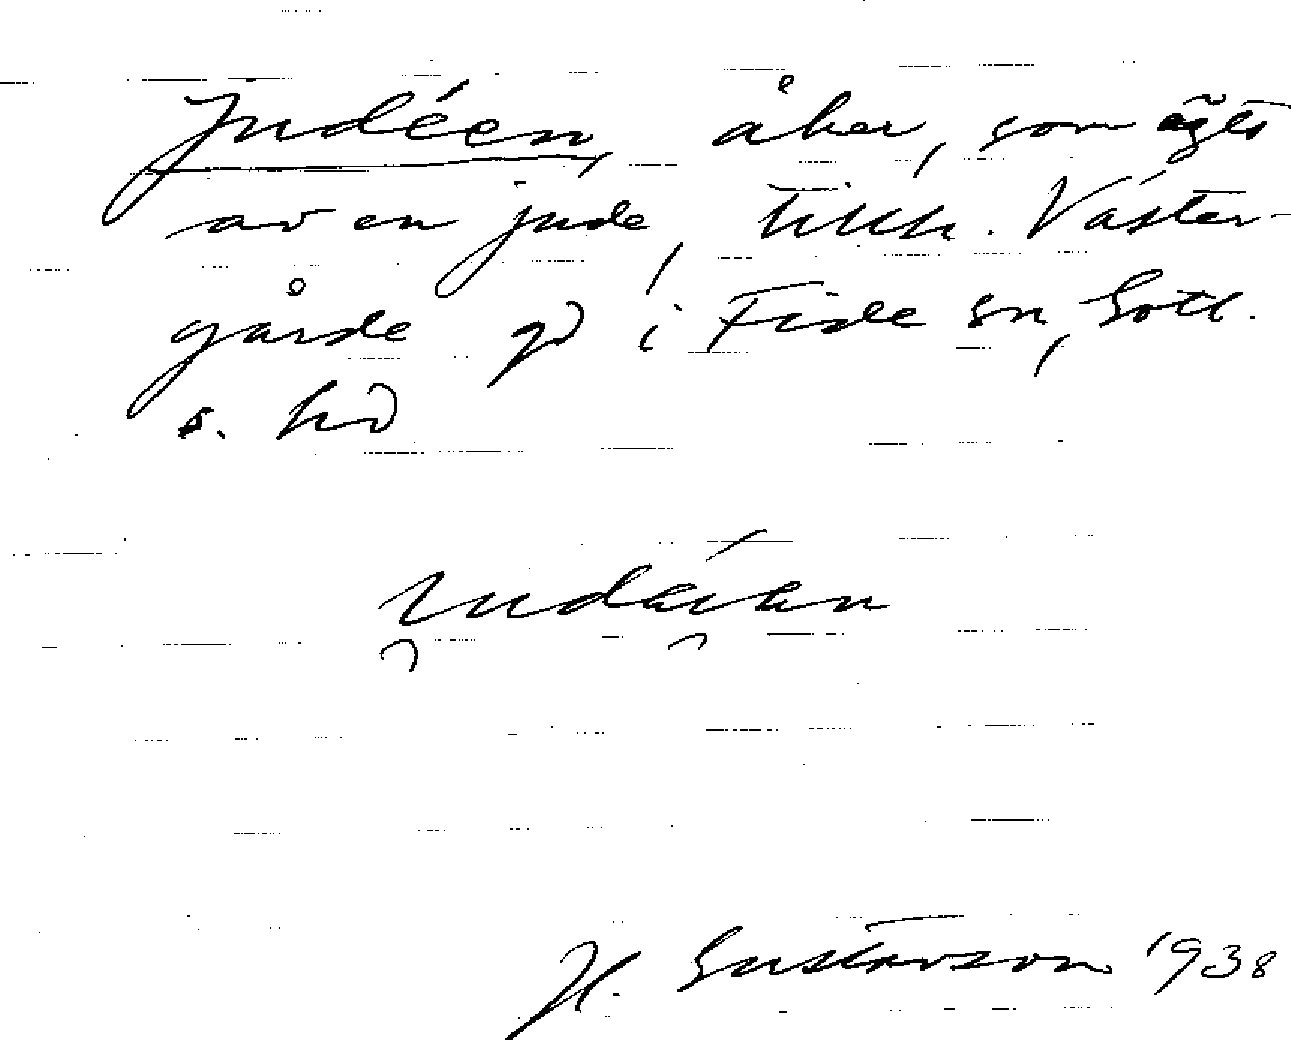 Judéen, åker, som ägts
av en jude, tillh. Väster-
gårde gd i Fide sn, Gotl.
s. hd
H. Gustavson 1938